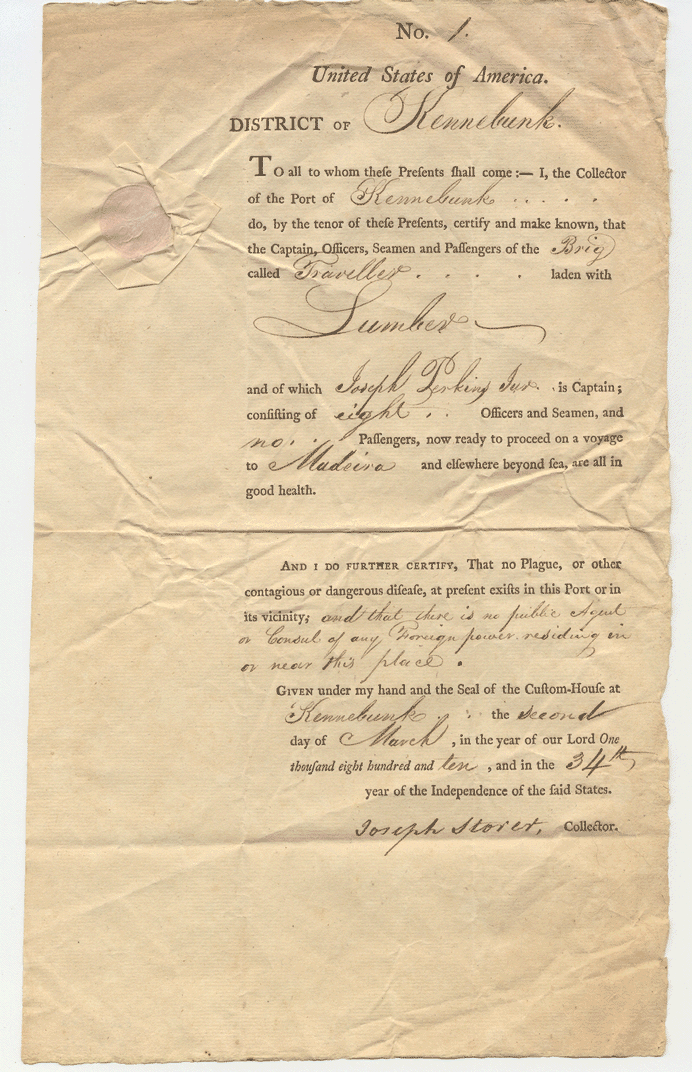 No. 1.
United States of America.
DISTRICT OF Kennebunk.
To all to whom theſe Preſents ſhall come :— I, the Collector
of the Port of Kennebunk . . . . .
do, by the tenor of theſe Preſents, certify and make known, that
the Captain, Officers, Seamen and Paſſengers of the Brig
called Traveller . . . . laden with
Lumber
and of which Joseph Perkins Jur. is Captain;
conſiſting of eight . . Officers and Seamen, and
no . . Paſſengers, now ready to proceed on a voyage
to Madeira and elſewhere beyond ſea, are all in
good health.
AND I DO FURTHER CERTIFY, That no Plague, or other
contagious or dangerous diſeaſe, at preſent exiſts in this Port or in
its vicinity; and that there is no public Agent
or Consul of any Foreign power residing in
or near this place .
GIVEN under my hand and the Seal of the Cuſtom-Houſe at
Kennebunk . . the second
day of March , in the year of our Lord One
thouſand eight hundred and ten , and in the 34th
year of the Independence of the ſaid States.
Joseph Storer, Collector.